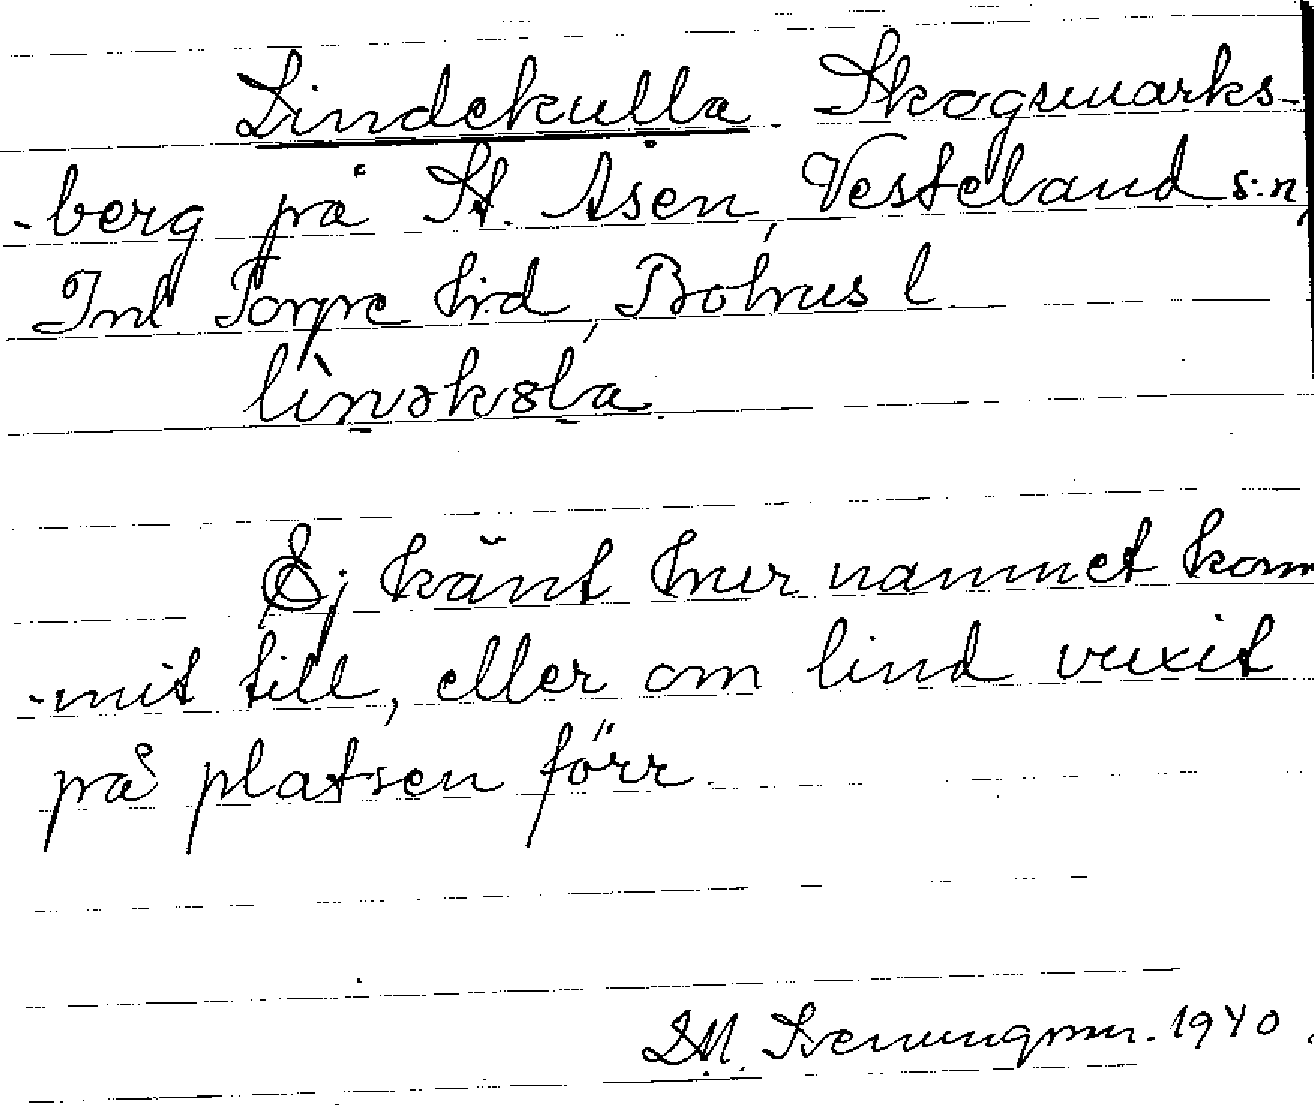 Lindekulla. Skogsmarks-
-berg på St. Åsen, Vesteland s:n,
Inl Torpe hrd, Bohus l
lìnəkɞla.
Ej känt hur namnet kom
-mit till, eller om lind vuxit
på platsen förr.
1940.